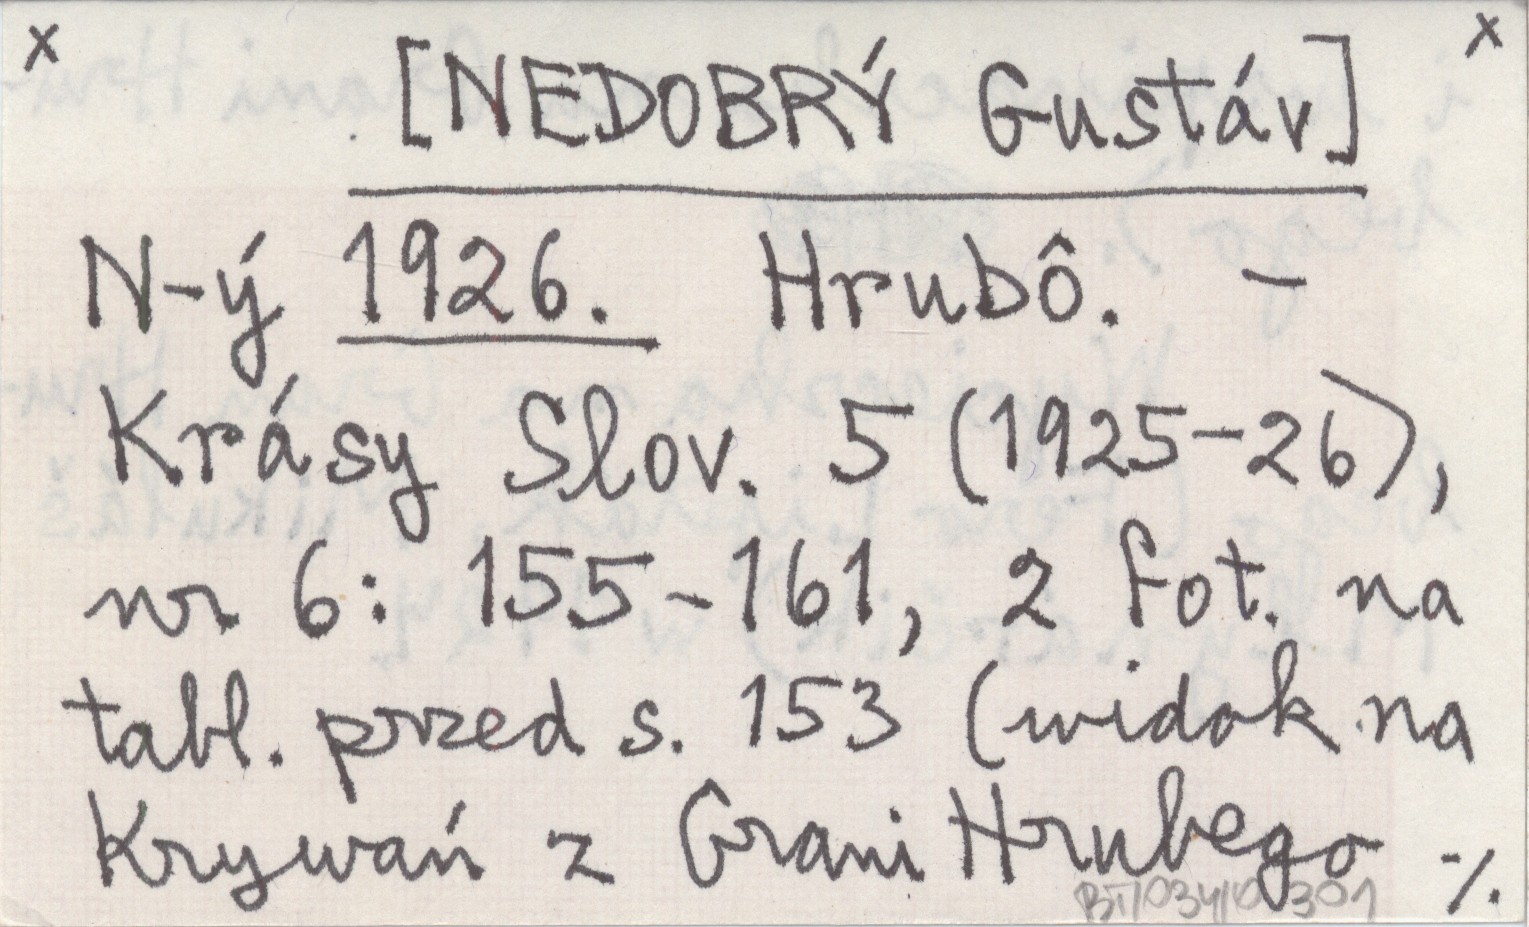 x x
[NEDOBRÝ Gustáv]
N-ý 1926. Hrubô. –
Krásy Slov. 5 (1925–26),
nr 6: 155–161, 2 fot. na
tabl. przed s. 153 (widok na
Krywań z Grani Hrubego ·/.